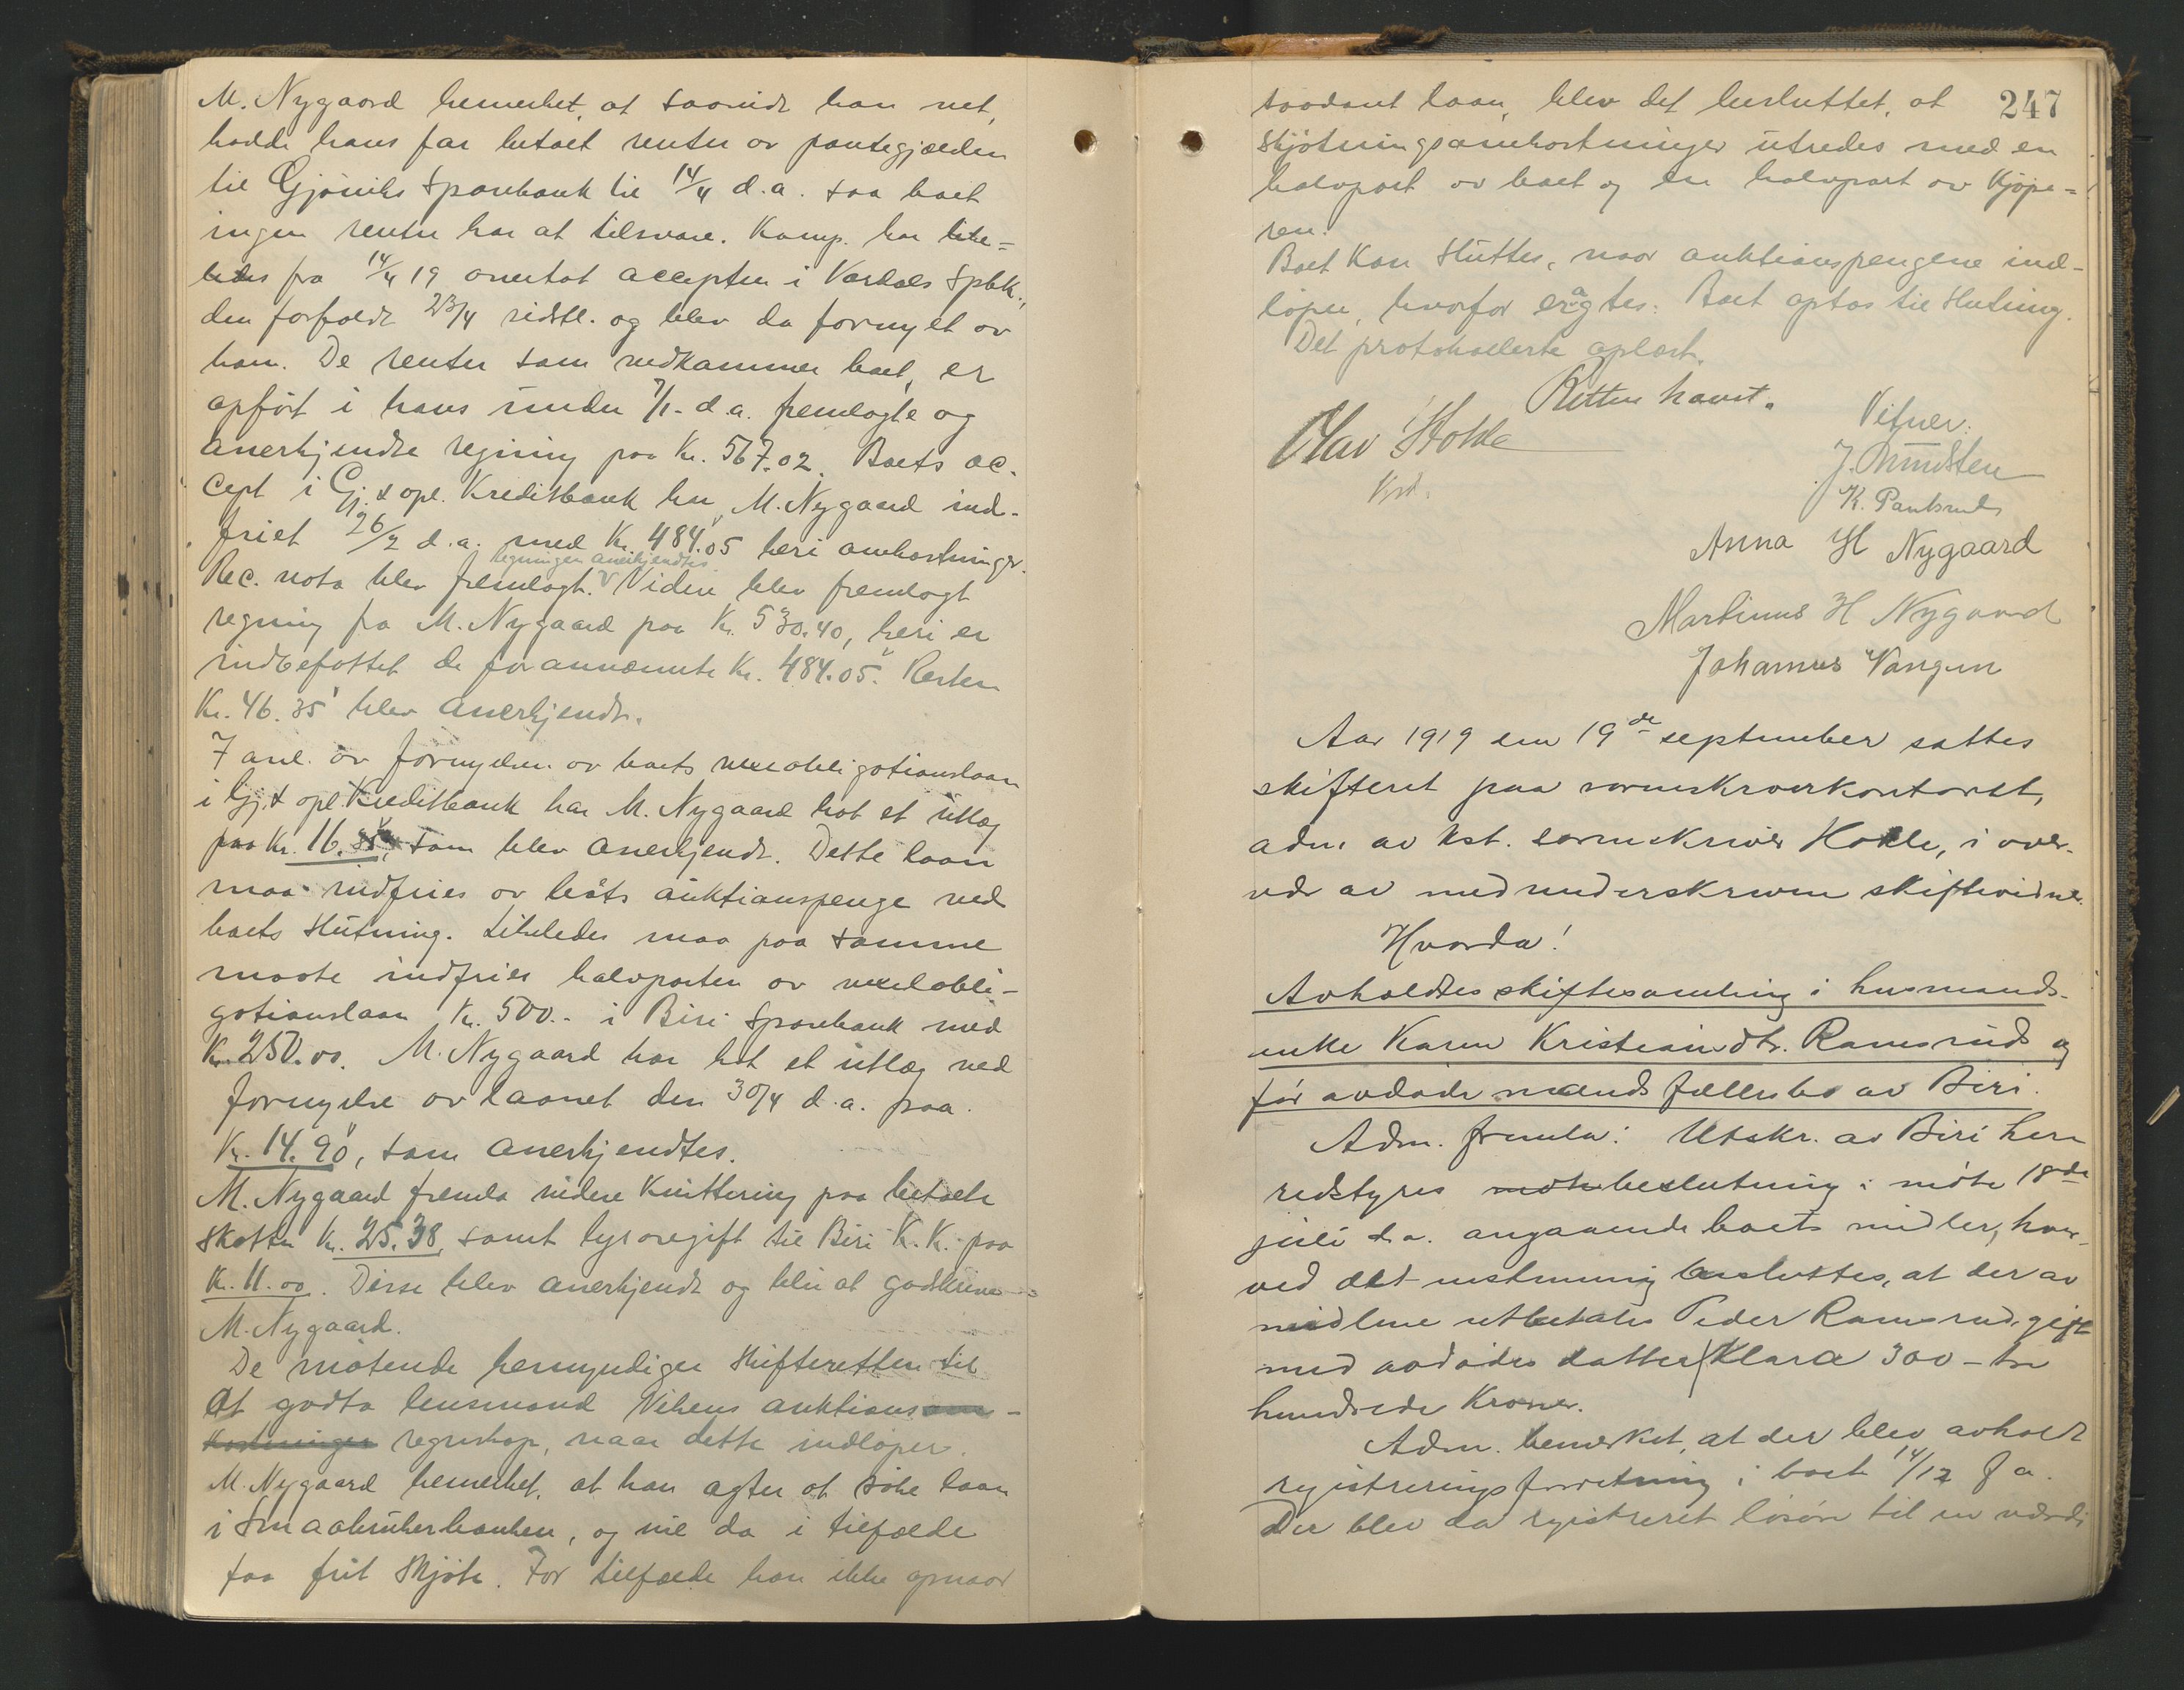 M. Nygaard bemerket, at saavidt han vet,
hadde hans far betalt renter av pantegjælden
til Gjøviks Sparebank til 14/4 d.a. saa boet
ingen renter har at tilsvare. Komp. har like-
ledes fra 14/4 19 overtat accepten i Vardals Spbk.,
den forfaldt 23/4 sidstl. og blev da fornyet av
ham. De renter som vedkommer boet, er
opført i hans under 7/1- d.a. fremlagte og
anerkjendte regning paa Kr. 567.02. Boets ac-
cept i Gj. & opl. Kreditbank har M. Nygaard ind-
friet 26/2 d.a. med Kr. 484.05 heri omkostninger.
Regningen anerkjendtes
Rec. nota blev fremlagt. V Videre blev fremlagt
regning fra M. Nygaard paa Kr. 530.40, heri er
indbefattet de forannævnte Kr. 484.05. Resten
Kr. 46.35 blev anerkjendt.
I anl. av fornyelsen av boets vexelobligationslaan
i Gj. & opl. Kreditbank har M. Nygaard hat et utlæg
paa Kr. 16. som blev anerkjendt. Dette laan
maa indfries av boets auktionspenge ved
boets slutning. Likeledes maa paa samme
maate indfries halvparten av vexelobli-
gationslaan Kr. 500.- i Biri Sparebank med
Kr. 250.00. M. Nygaard har hat et utlæg ved
fornyelse av laanet den 30/4 d.a. paa
Kr. 14.90, som anerkjendtes.
M. Nygaard fremla videre kvittering paa betalte
skatter Kr. 25.38, samt lysavgift til Biri K.K. paa
Kr. 11.00. Disse blev anerkjendt og blir at godskrive
M. Nygaard.
De møtende bemyndiger skifteretten til
at godta lensmand Vikens auktionsom-
kostninger regnskap, naar dette indløper.
M. Nygaard bemerket, at han agter at søke laan
i Smaabrukerbanken, og vil da i tilfælde
faa frit skjøte. For tilfælde han ikke opnaar
247
saadant laan, blev det besluttet, at
skjøtningsomkostninger utredes med en
halvpart av boet og en halvpart av kjøpe-
ren.
Boet kan sluttes, naar auktionspengene ind-
løper, hvorfor eragtes: Boet optas til slutning.
Det protokollerte oplæst.
Retten hævet.
Olav Hokle
Kst.
Vitner:
J. Amundsten
K. Pantsrud
Anna H Nygaard
Martinus H Nygaard
Johannes Vangen
Aar 1919 den 19de september sattes
skifteret paa sorenskriverkontoret,
adm. av kst. sorenskriver Hokle, i over-
vær av medunderskrevne skiftevidner.
Hvorda!
Avholdtes skiftesamling i husmands-
enke Karen Kristiansdtr. Ramsrud og
før avdøde mands fællesbo av Biri.
Adm. fremla: Utskr. av Biri her-
redstyres møtebeslutning i møte 18de
juli d.a. angaaende boets midler, hvor-
ved det enstemmig besluttes, at der av
midlene utbetales Peder Ramsrud, gift
med avdødes datter Klara 300 – tre
hundrede kroner.
Adm. bemerket, at der blev avholdt
registreringsforretning i boet 14/12 f.a.
Der blev da registreret løsøre til en værdi